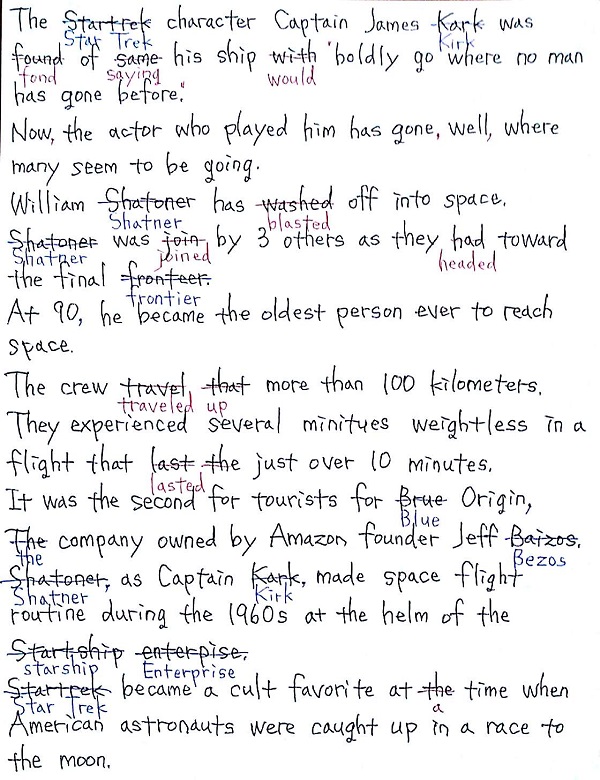 The Startrek character Captain James Kark was
Star Trek Kirk
found of same his ship with "boldly go where no man
fond saying would
has gone before."
Now, the actor who played him has gone, well, where
many seem to be going.
William Shatoner has washed off into space.
Shatner blasted
Shatoner was join by 3 others as they had toward
Shatner joined headed
the final fronteer.
frontier
At 90, he became the oldest person ever to reach
space.
The crew travel that more than 100 kilometers.
traveled up
They experienced several minityes weightless in a
flight that last the just over 10 minutes.
lasted
It was the second for tourists for Brue Origin,
Blue
The company owned by Amazon founder Jeff Baizos.
the Bezos
Shatoner, as Captain Kark, made space flight
Shatner Kirk
routine during the 1960s at the helm of the
Startship enterpise.
starship Enterprise
Startrek became a cult favorite at the time when
Star Trek a
American astronauts were caught up in a race to
the moon.